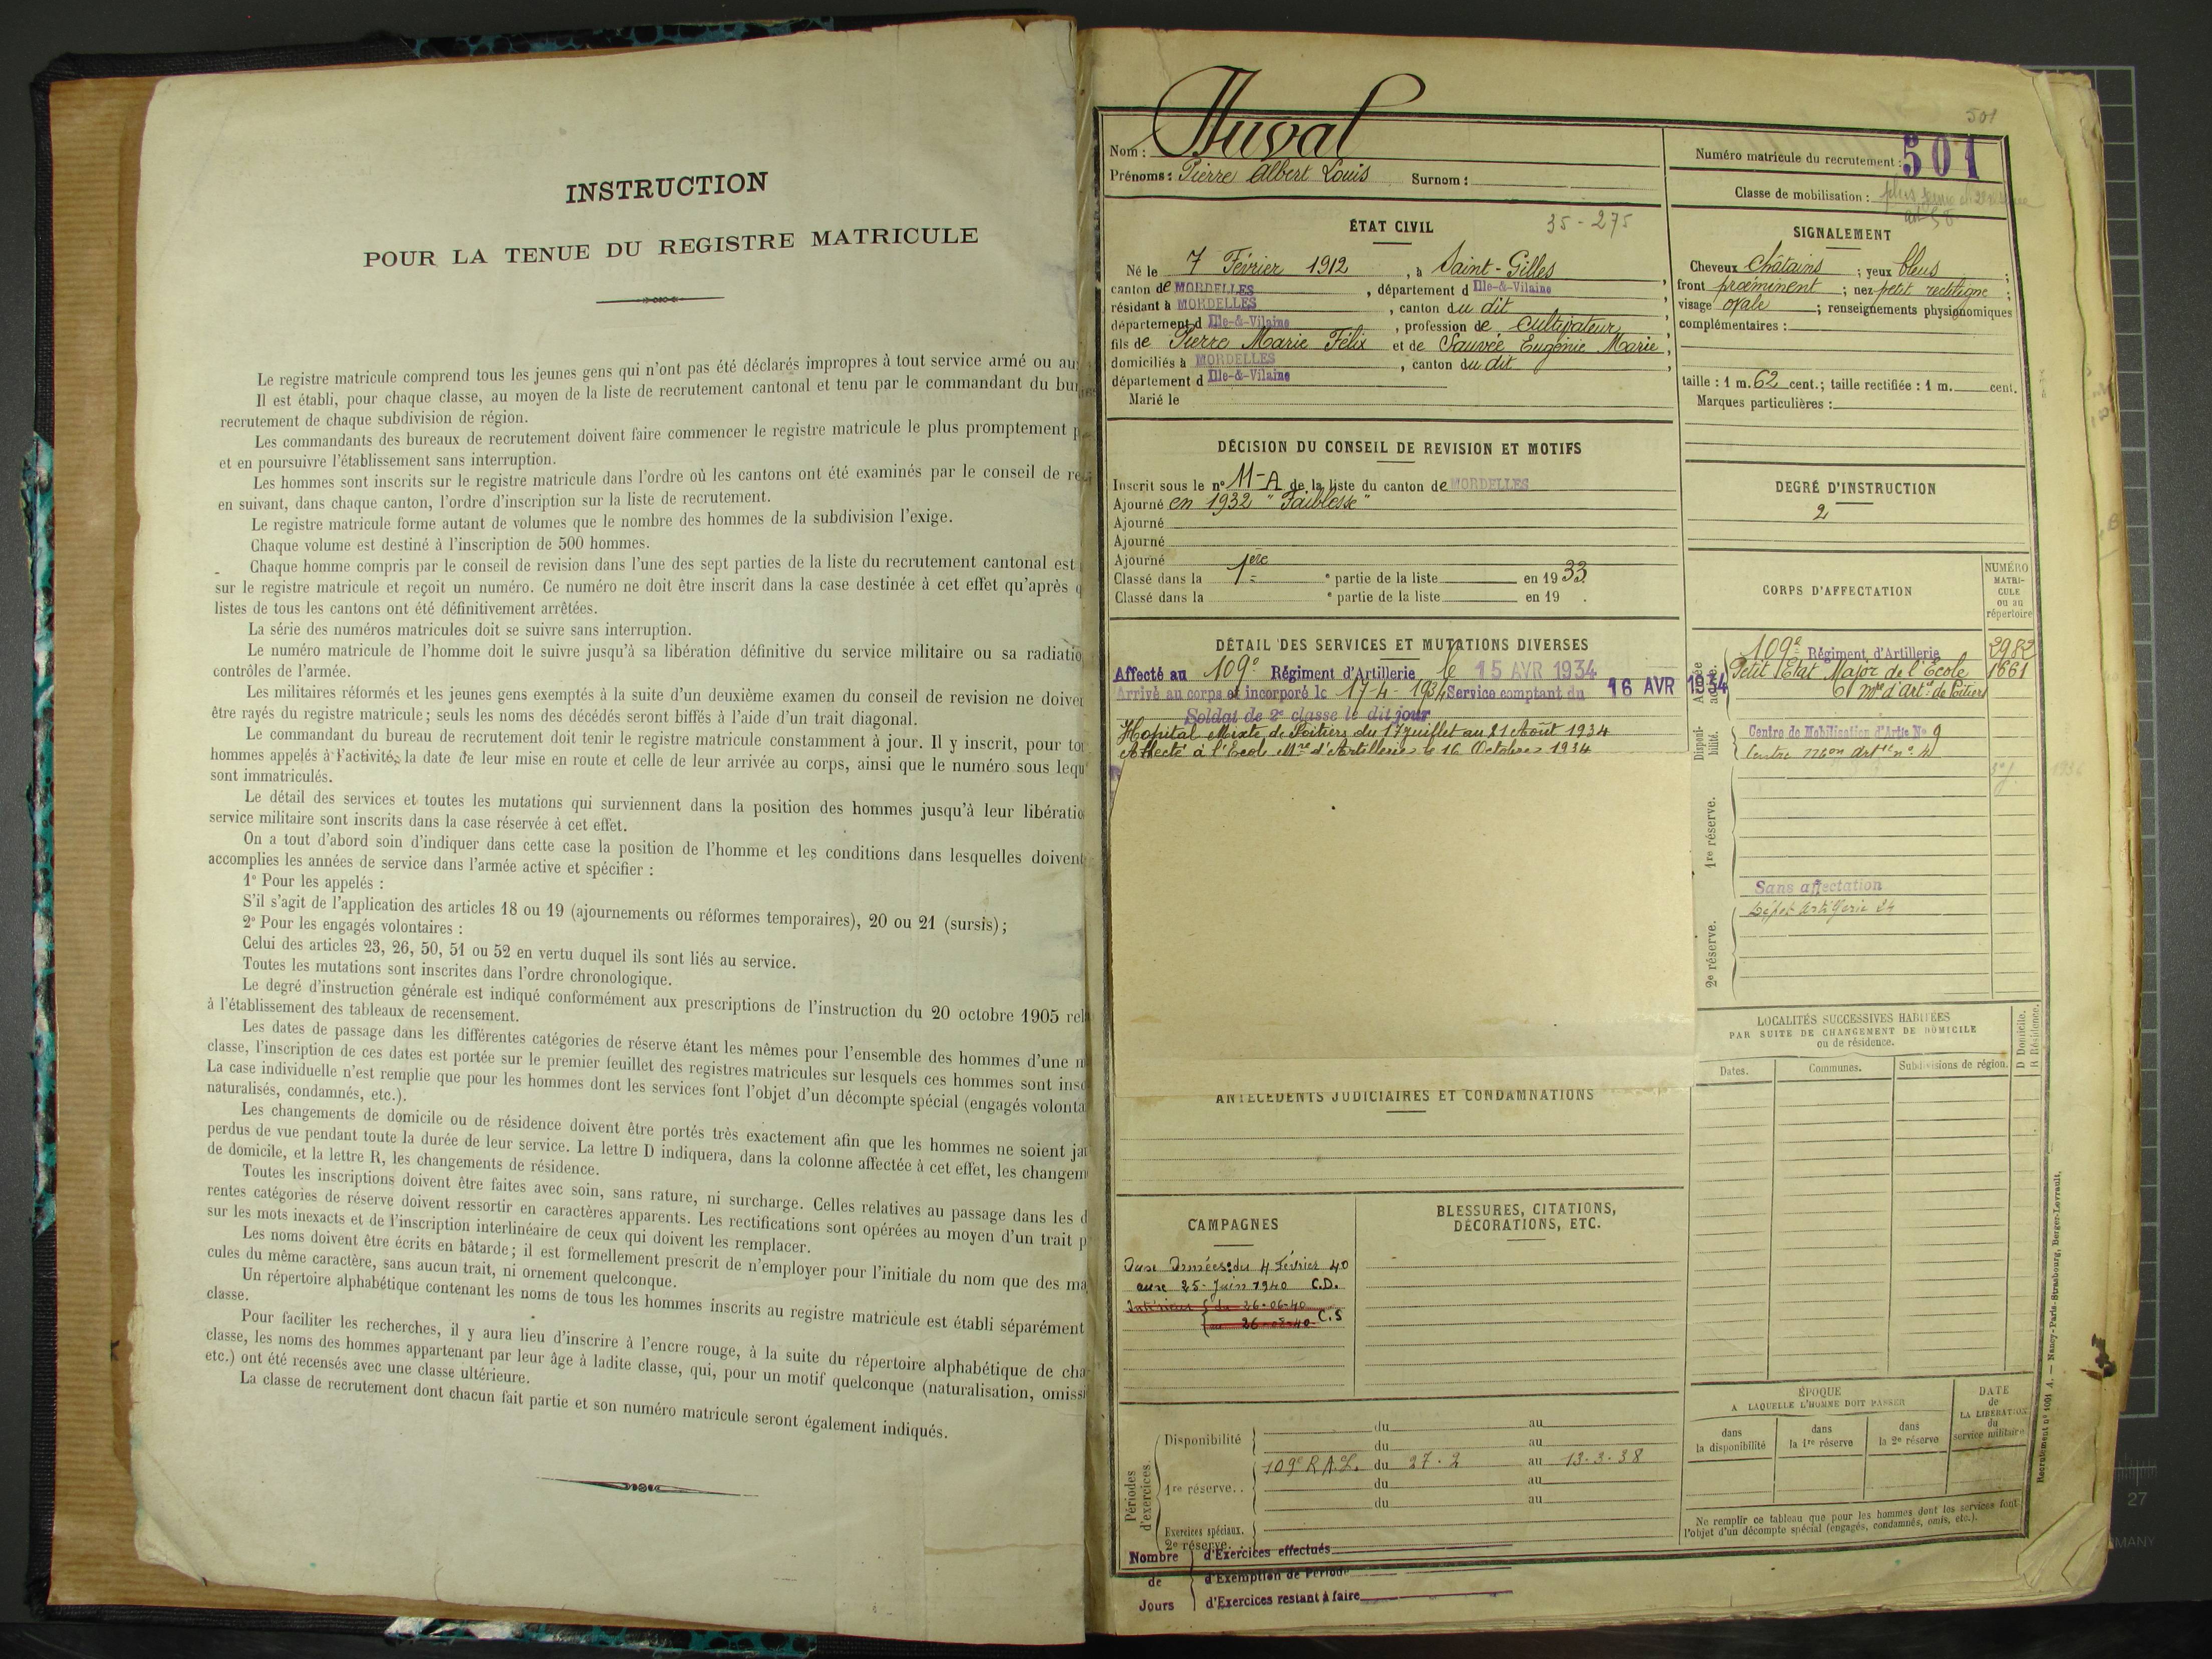 INSTRUCTION
POUR LA TENUE DU REGISTRE MATRICULE
Le registre matricule comprend tous les jeunes gens qui n'ont pas été déclarés impropres à tout service armé ou au
Il est établi, pour chaque classe, au moyen de la liste de recrutement cantonal et tenu par le commandant du bu
recrutement de chaque subdivision de région.
Les commandants des bureaux de recrutement doivent faire commencer le registre matricule le plus promptement p
et en poursuivre l'établissement sans interruption.
Les hommes sont inscrits sur le registre matricule dans l'ordre où les cantons ont été examinés par le conseil de re
en suivant, dans chaque canton, l'ordre d'inscription sur la liste de recrutement.
Le registre matricule forme autant de volumes que le nombre des hommes de la subdivision l'exige.
Chaque volume est destiné à l'inscription de 500 hommes.
Chaque homme compris par le conseil de revision dans l'une des sept parties de la liste du recrutement cantonal est
sur le registre matricule et reçoit un numéro. Ce numéro ne doit être inscrit dans la case destinée à cet effet qu'après q
listes de tous les cantons ont été définitivement arrêtées.
La série des numéros matricules doit se suivre sans interruption.
Le numéro matricule de l'homme doit le suivre jusqu'à sa libération définitive du service militaire ou sa radiatio
contrôles de l'armée.
Les militaires réformés et les jeunes gens exemptés à la suite d'un deuxième examen du conseil de revision ne doiven
être rayés du registre matricule; seuls les noms des décédés seront biffés à l'aide d'un trait diagonal.
Le commandant du bureau de recrutement doit tenir le registre matricule constamment à jour. Il y inscrit, pour tou
hommes appelés à l'activité, la date de leur mise en route et celle de leur arrivée au corps, ainsi que le numéro sous lequ
sont immatriculés.
Le détail des services et toutes les mutations qui surviennent dans la position des hommes jusqu'à leur libératio
service militaire sont inscrits dans la case réservée à cet effet.
On a tout d'abord soin d'indiquer dans cette case la position de l'homme et les conditions dans lesquelles doivent
accomplies les années de service dans l'armée active et spécifier :
1° Pour les appelés :
S'il s'agit de l'application des articles 18 ou 19 (ajournements ou réformes temporaires), 20 ou 21 (sursis);
2° Pour les engagés volontaires :
Celui des articles 23, 26, 50, 51 ou 52 en vertu duquel ils sont liés au service.
Toutes les mutations sont inscrites dans l'ordre chronologique.
Le degré d'instruction générale est indiqué conformément aux prescriptions de l'instruction du 20 octobre 1905 rel
à l'établissement des tableaux de recensement.
Les dates de passage dans les différentes catégories de réserve étant les mêmes pour l'ensemble des hommes d'une m
classe, l'inscription de ces dates est portée sur le premier feuillet des registres matricules sur lesquels ces hommes sont insc
La case individuelle n'est remplie que pour les hommes dont les services font l'objet d'un décompte spécial (engagés volonta
naturalisés, condamnés, etc.).
Les changements de domicile ou de résidence doivent être portés très exactement afin que les hommes ne soient jam
perdus de vue pendant toute la durée de leur service. La lettre D indiquera, dans la colonne affectée à cet effet, les changem
de domicile, et la lettre R, les changements de résidence.
Toutes les inscriptions doivent être faites avec soin, sans rature, ni surcharge. Celles relatives au passage dans les d
rentes catégories de réserve doivent ressortir en caractères apparents. Les rectifications sont opérées au moyen d'un trait p
sur les mots inexacts et de l'inscription interlinéaire de ceux qui doivent les remplacer.
Les noms doivent être écrits en bâtarde; il est formellement prescrit de n'employer pour l'initiale du nom que des ma
cules du même caractère, sans aucun trait, ni ornement quelconque.
Un répertoire alphabétique contenant les noms de tous les hommes inscrits au registre matricule est établi séparément
classe.
Pour faciliter les recherches, il y aura lieu d'inscrire à l'encre rouge, à la suite du répertoire alphabétique de cha
classe, les noms des hommes appartenant par leur âge à ladite classe, qui, pour un motif quelconque (naturalisation, omissi
etc.) ont été recensés avec une classe ultérieure.
La classe de recrutement dont chacun fait partie et son numéro matricule seront également indiqués.
501
Nom : Duval
Prénoms : Pierre Albert Louis Surnom :
Numéro matricule du recrutement : 501
Classe de mobilisation :
ÉTAT CIVIL 35-275
Né le 7 Février 1912, à Saint-Gilles
canton de MORDELLES, département d Ille-&-Vilaine
résidant à MORDELLES, canton du dit
département d Ille-&-Vilaine, profession de cultivateur
fils de Pierre Marie Félix et de Sauvée Eugénie Marie
domiciliés à MORDELLES, canton du dit
département d Ille-&-Vilaine
Marié le
SIGNALEMENT
Cheveux châtains ; yeux bleus ;
front proéminent ; nez petit rectiligne ;
visage ovale ; renseignements physionomiques
complémentaires :
taille : 1 m. 62 cent.; taille rectifiée : 1 m. cent.
Marques particulières :
DÉCISION DU CONSEIL DE REVISION ET MOTIFS
Inscrit sous le n° 11-A de la liste du canton de MORDELLES
Ajourné en 1932 "Faiblesse"
Ajourné
Ajourné
Ajourné
Classé dans la 1ère e partie de la liste en 1933.
Classé dans la e partie de la liste en 19 .
DEGRÉ D'INSTRUCTION
2
DÉTAIL DES SERVICES ET MUTATIONS DIVERSES
Affecté au 109e Régiment d'Artillerie le 15 AVR 1934
Arrivé au corps et incorporé le 17-4-1934 Service comptant du 16 AVR 1934
Soldat de 2e classe le dit jour
Hopital Mixte de Poitiers du 17 juillet au 21 Août 1934
Affecté à l'Ecole Mre d'Artillerie le 16 Octobre 1934
CORPS D'AFFECTATION
NUMÉRO
MATRI-
CULE
ou au
répertoire
Armée active.
109e Régiment d'Artillerie 2982
Petit Etat Major de l'Ecole 1661
Mre d'Artie de Poitiers
Disponi-
bilité.
Centre de Mobilisation d'Artie N° 9
Centre Mon Artie n° 4
1re réserve.
Sans affectation
2e réserve.
Dépot Artillerie 24
LOCALITÉS SUCCESSIVES HABITÉES
PAR SUITE DE CHANGEMENT DE DOMICILE
ou de résidence.
Dates.
Communes.
Subdivisions de région.
D Domicile.
R Résidence.
ANTÉCÉDENTS JUDICIAIRES ET CONDAMNATIONS
CAMPAGNES
Aux Armées: du 4 Février 40
au 25 Juin 1940 C.D.
Intérieur { du 26-06-40
au 26-08-40 C.S
BLESSURES, CITATIONS,
DÉCORATIONS, ETC.
Périodes
d'exercices.
Disponibilité
du au
du au
1re réserve..
109e R.A.L. du 27.2 au 13.3.38
du au
du au
Exercices spéciaux.
2e réserve.
Nombre
de
Jours
d'Exercices effectués
d'Exemption de Période
d'Exercices restant à faire
ÉPOQUE
A LAQUELLE L'HOMME DOIT PASSER
dans
la disponibilité
dans
la 1re réserve
dans
la 2e réserve
DATE
de
LA LIBÉRATION
du
service militaire
Ne remplir ce tableau que pour les hommes dont les services font
l'objet d'un décompte spécial (engagés, condamnés, omis, etc.).
Recrutement n° 1001 A. — Nancy-Paris-Strasbourg, Berger-Levrault.
27
MANY